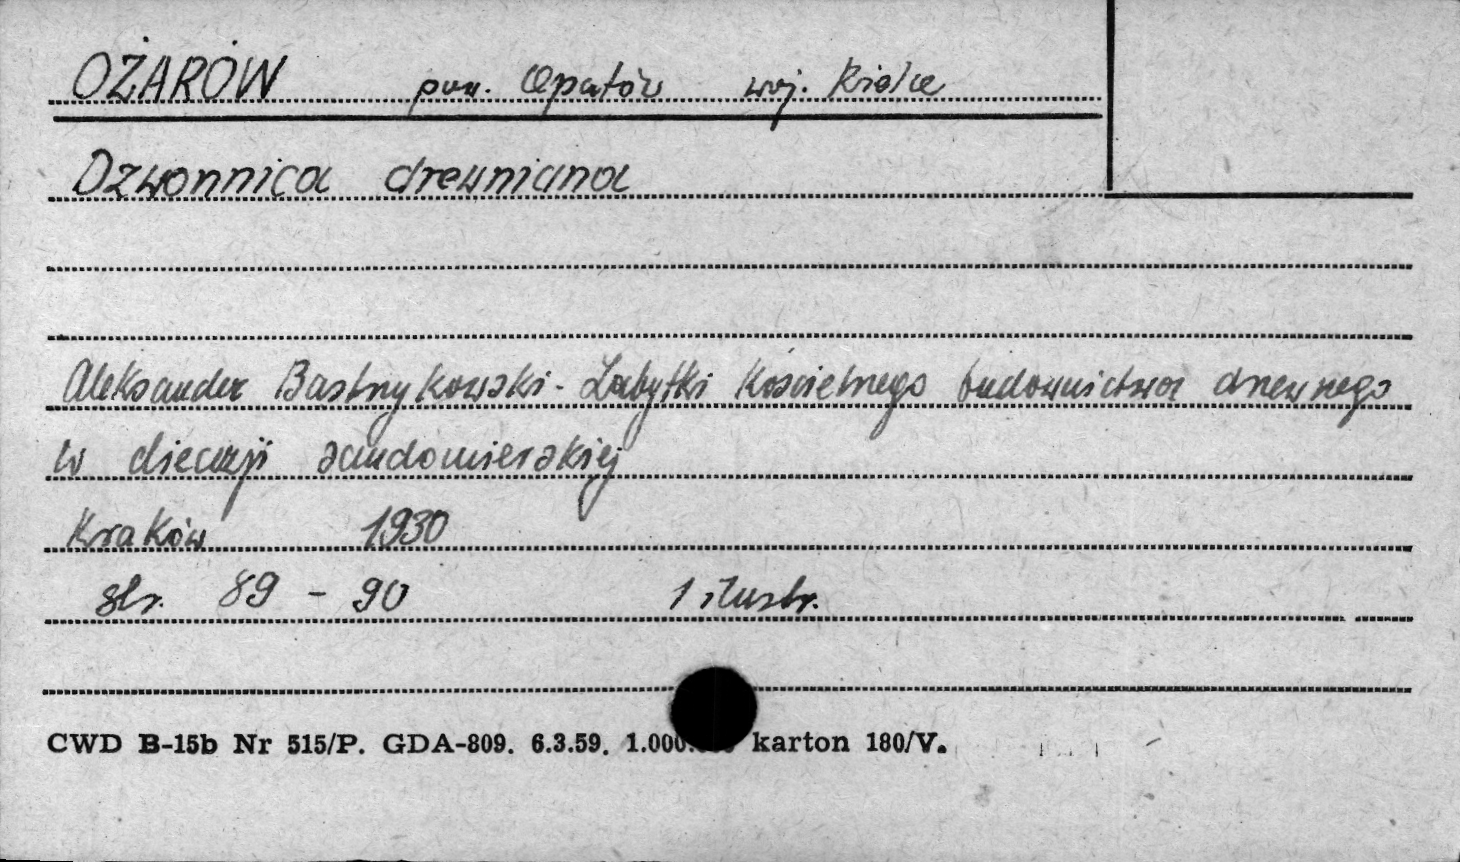 OŻARÓW pow. Opatów woj. Kielce
Dzwonnica drewniana
Aleksander Bastrzykowski - Zabytki Kościelnego budownictwa drewnego
w diecezji sandomierskiej
Kraków 1930
str. 89 - 90 1 ilustr.
CWD B-15b Nr 515/P. GDA-809. 6.3.59. karton 180/V.